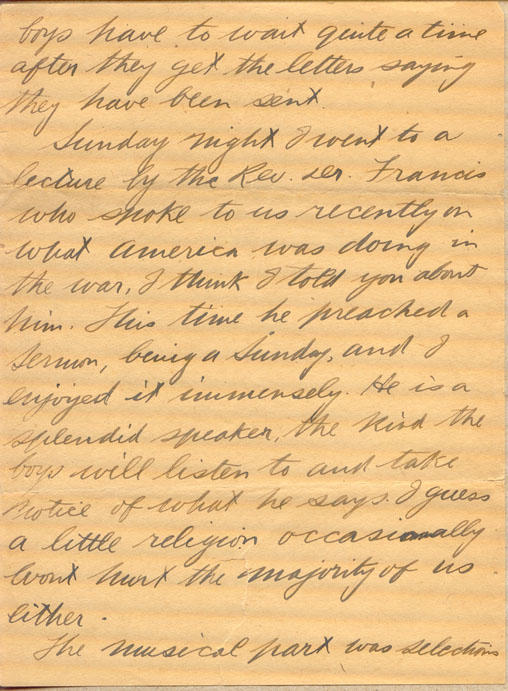 boys have to wait quite a time
after they get the letters saying
they have been sent.
Sunday night I went to a
lecture by the Rev. Francis
who spoke to us recently on
what America was doing in
the war, I think I told you about
him. This time he preached a
sermon, being a Sunday, and I
enjoyed it immensely. He is a
splendid speaker, the kind the
boys will listen to and take
notice of what he says. I guess
a little religion occasionally
wont hurt the majority of us
either.
The musical part was selections